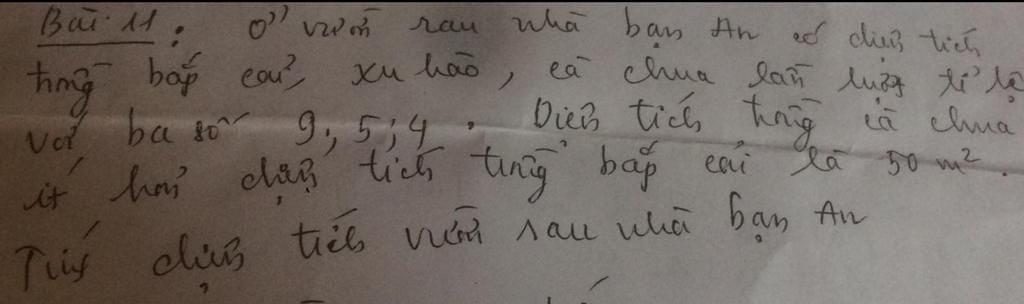 Bài 11: Ở vườn rau nhà bạn An có diện tích
trồng bắp cải, xu hào, cà chua lần lượt tỉ lệ
với ba số 9; 5; 4. Diện tích trồng cà chua
ít hơn diện tích trồng bắp cải là 50 m².
Tính diện tích vườn rau nhà bạn An